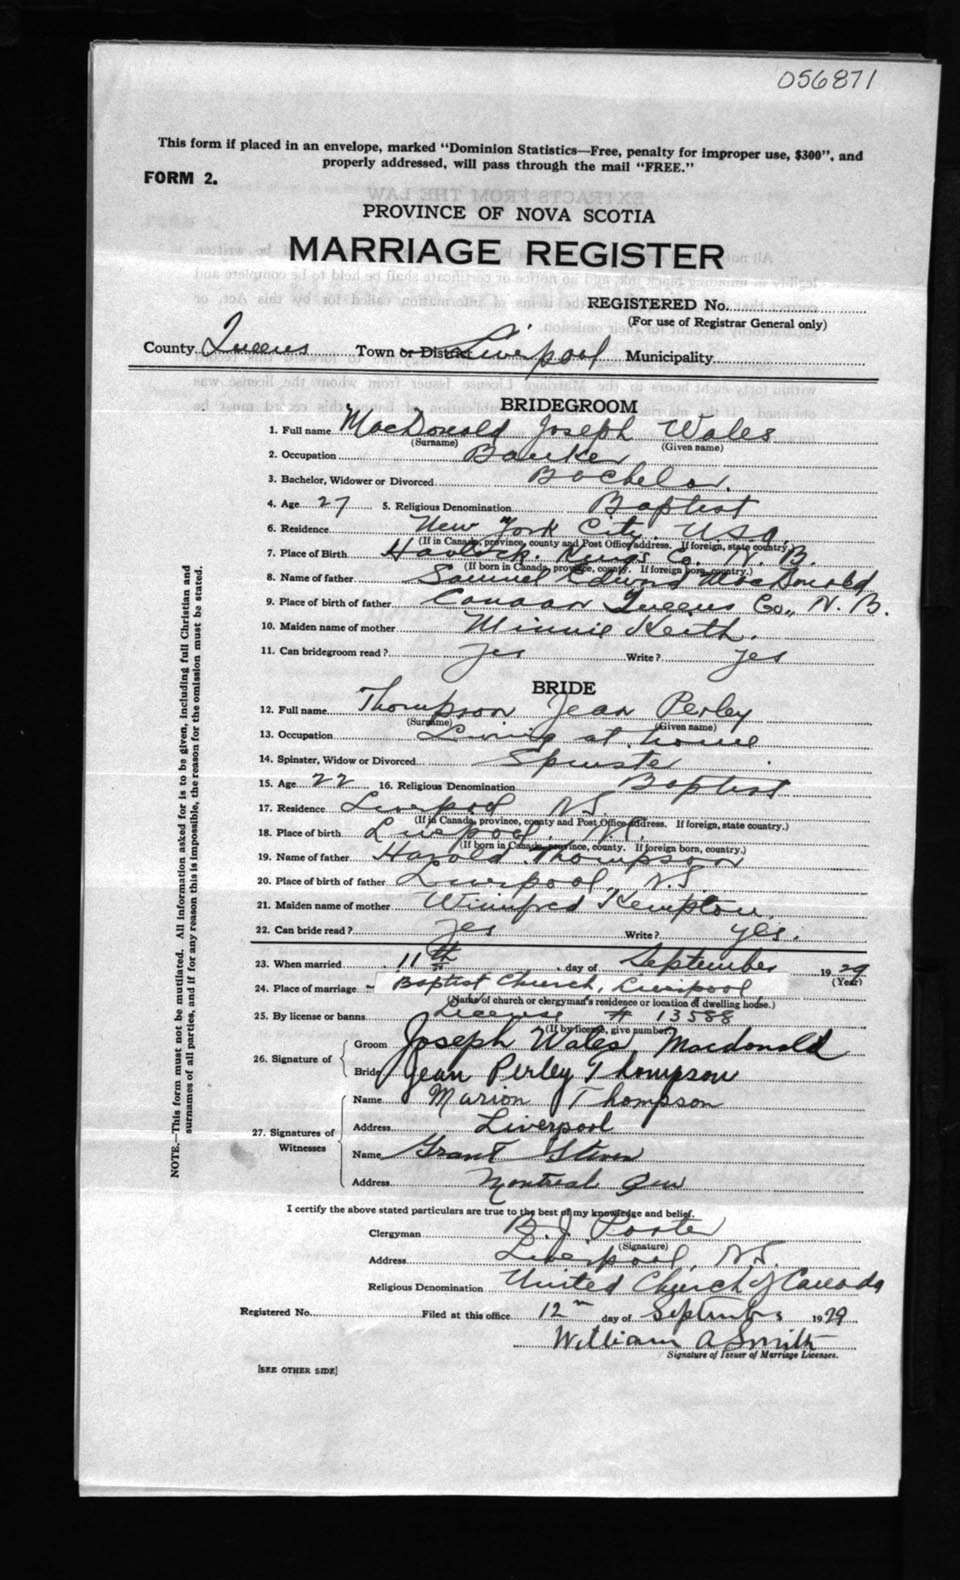 056871
This form if placed in an envelope, marked "Dominion Statistics—Free, penalty for improper use, $300", and
properly addressed, will pass through the mail "FREE."
FORM 2.
PROVINCE OF NOVA SCOTIA
MARRIAGE REGISTER
REGISTERED No.
(For use of Registrar General only)
County Queens Town or District Liverpool Municipality
BRIDEGROOM
1. Full name MacDonald Joseph Wales
(Surname) (Given name)
2. Occupation Banker
3. Bachelor, Widower or Divorced Bachelor.
4. Age 27 5. Religious Denomination Baptist
6. Residence New York City. U.S.A.
(If in Canada, province, county and Post Office address. If foreign, state country.)
7. Place of Birth Havlock. Kings Co. N. B.
(If born in Canada, province, county. If foreign born, country.)
8. Name of father Samuel Edward MacDonald
9. Place of birth of father Canaan Queens Co., N. B.
10. Maiden name of mother Minnie Keith.
11. Can bridegroom read? yes Write? yes
BRIDE
12. Full name Thompson Jean Perley
(Surname) (Given name)
13. Occupation Living at home
14. Spinster, Widow or Divorced Spinster
15. Age 22 16. Religious Denomination Baptist
17. Residence Liverpool N.S.
(If in Canada, province, county and Post Office address. If foreign, state country.)
18. Place of birth Liverpool. N.S.
(If born in Canada, province, county. If foreign born, country.)
19. Name of father Harold Thompson
20. Place of birth of father Liverpool, N.S.
21. Maiden name of mother Winnifred Kempton.
22. Can bride read? yes Write? yes.
23. When married 11th day of September 1929
(Year)
24. Place of marriage Baptist Church, Liverpool
(Name of church or clergyman's residence or location of dwelling house.)
25. By license or banns License # 13588
(If by license, give number)
26. Signature of Groom Joseph Wales Macdonald
Bride Jean Perley Thompson
27. Signatures of Witnesses Name Marion Thompson
Address Liverpool
Name Grant
Address Montreal Que
I certify the above stated particulars are true to the best of my knowledge and belief.
Clergyman B. J. Porter
(Signature)
Address Liverpool, N.S.
Religious Denomination United Church of Canada
Registered No. Filed at this office 12 day of September 1929
William A Smith
Signature of Issuer of Marriage Licenses.
[SEE OTHER SIDE]
NOTE.—This form must not be mutilated. All information asked for is to be given, including full Christian and
surnames of all parties, and if for any reason this is impossible, the reason for the omission must be stated.